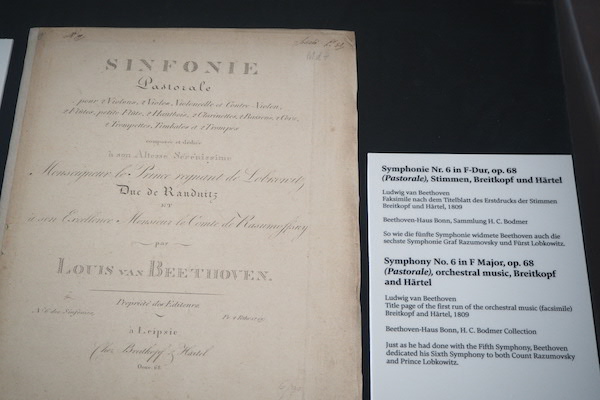 SINFONIE
Pastorale
pour 2 Violons, 2 Violes, Violoncelle et Contre-Violon,
2 Flûtes, petite Flûte, 2 Hautbois, 2 Clarinettes, 2 Bassons, 2 Cors,
2 Trompettes, Timbales et 2 Trompes
composée et dediée
à son Altesse Sérénissime
Monseigneur le Prince regnant de Lobkowitz
Duc de Raudnitz
à son Excellence Monsieur le Comte de Rasumoffsky
par
LOUIS VAN BEETHOVEN.
Propriété des Editeurs.
à Leipsic
Chez Breitkopf & Härtel
Oeuv. 68.
Symphonie Nr. 6 in F-Dur, op. 68
(Pastorale), Stimmen, Breitkopf und Härtel
Ludwig van Beethoven
Faksimile nach dem Titelblatt des Erstdrucks der Stimmen
Breitkopf und Härtel, 1809
Beethoven-Haus Bonn, Sammlung H. C. Bodmer
So wie die fünfte Symphonie widmete Beethoven auch die
sechste Symphonie Graf Razumovsky und Fürst Lobkowitz.
Symphony No. 6 in F Major, op. 68
(Pastorale), orchestral music, Breitkopf
and Härtel
Ludwig van Beethoven
Title page of the first run of the orchestral music (facsimile)
Breitkopf and Härtel, 1809
Beethoven-Haus Bonn, H. C. Bodmer Collection
Just as he had done with the Fifth Symphony, Beethoven
dedicated his Sixth Symphony to both Count Razumovsky
and Prince Lobkowitz.